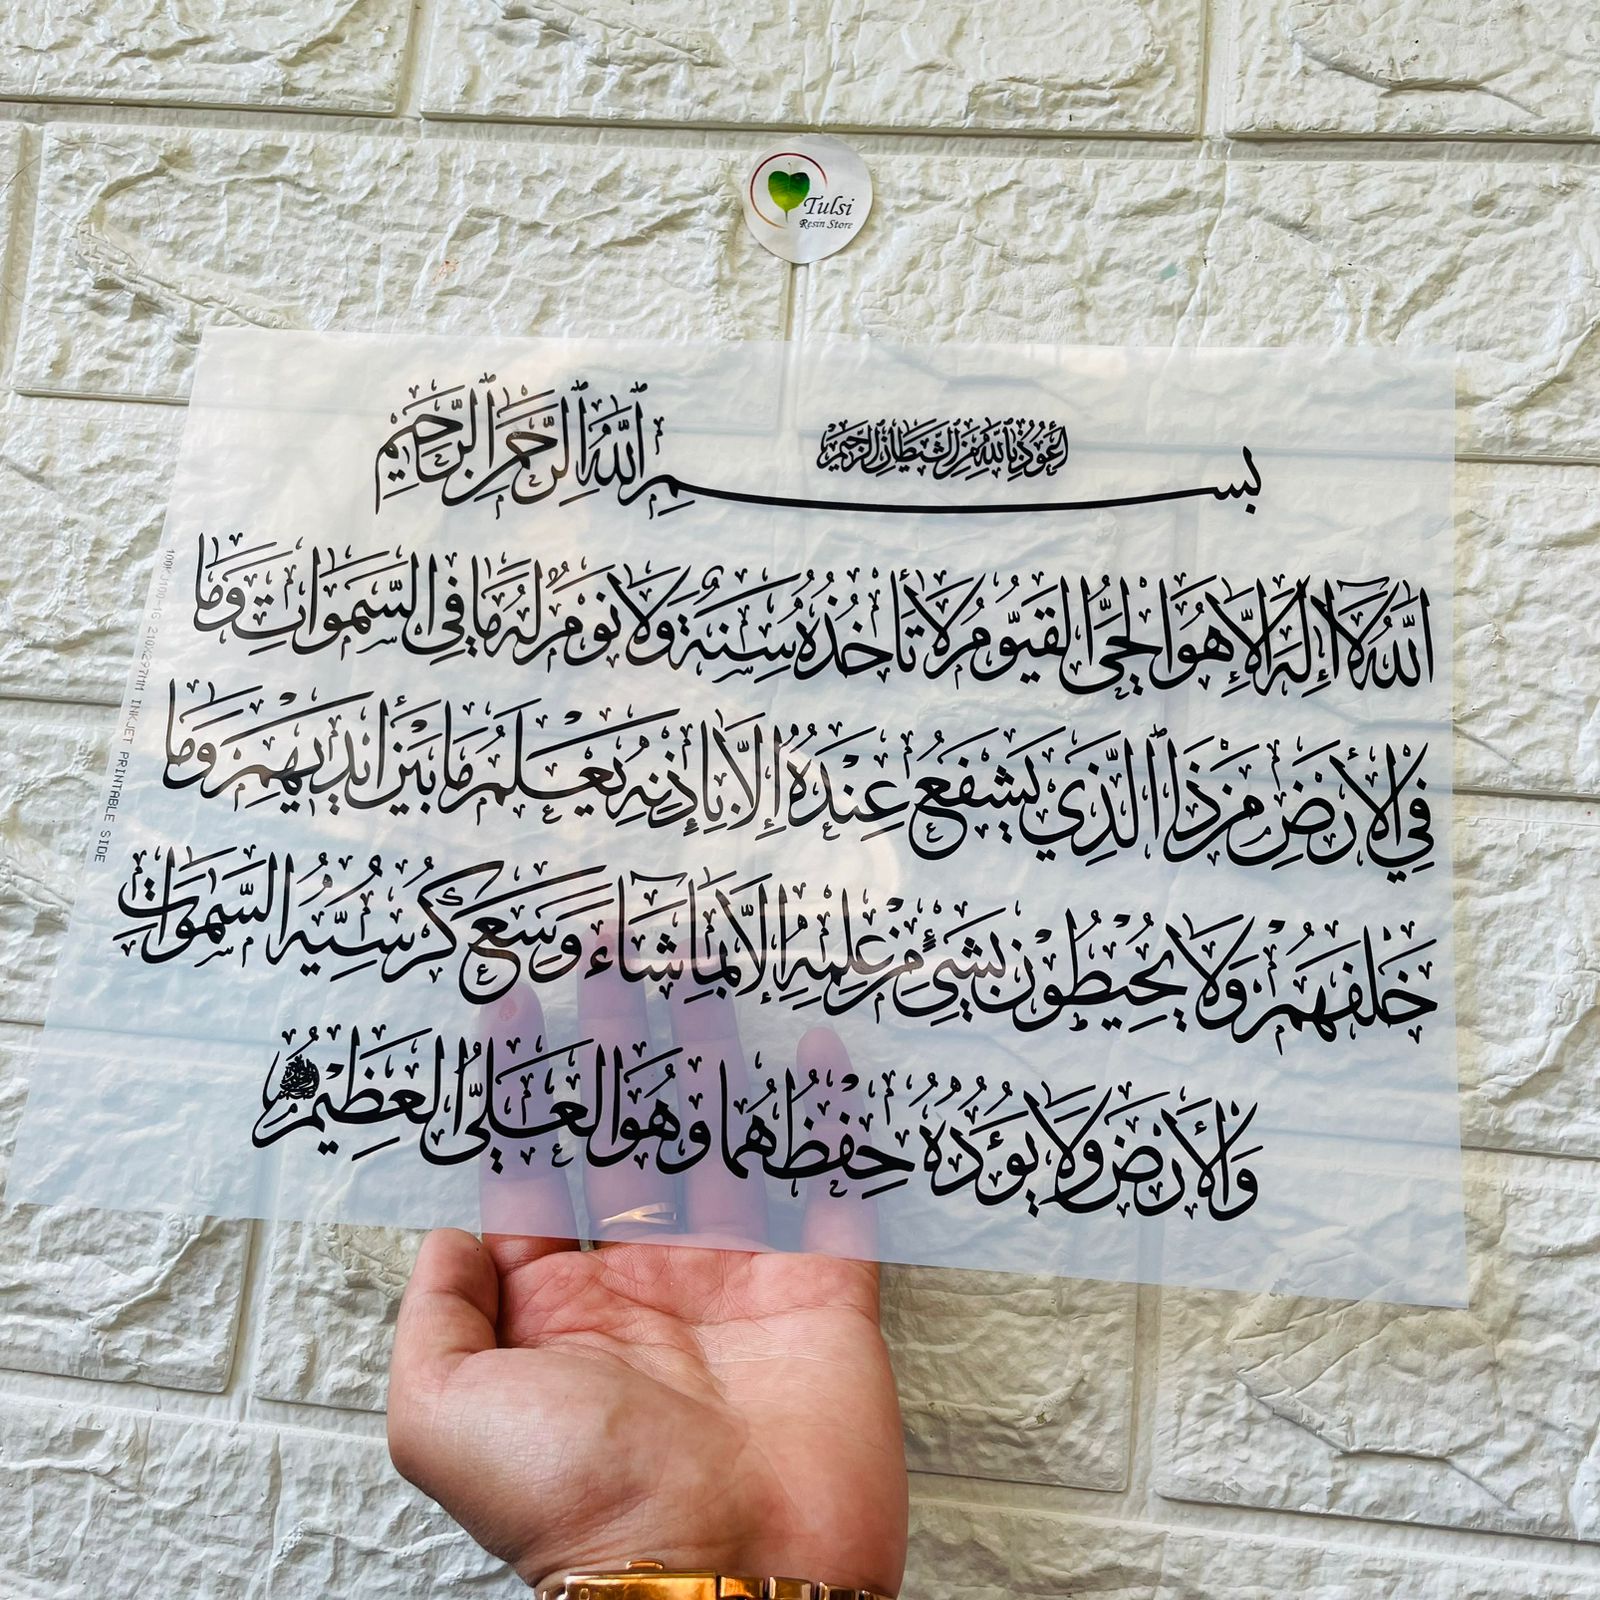 Tulsi
Resin Store
أَعُوذُ بِاللَّهِ مِنَ الشَّيْطَانِ الرَّجِيمِ
بِسْمِ ٱللَّهِ ٱلرَّحْمَٰنِ ٱلرَّحِيمِ
اللَّهُ لَآ إِلَٰهَ إِلَّا هُوَ الْحَيُّ الْقَيُّومُ لَا تَأْخُذُهُ سِنَةٌ وَلَا نَوْمٌ لَهُ مَا فِي السَّمَوَاتِ وَمَا
فِي الْأَرْضِ مَنْ ذَا ٱلَّذِي يَشْفَعُ عِنْدَهُ إِلَّا بِإِذْنِهِ يَعْلَمُ مَا بَيْنَ أَيْدِيهِمْ وَمَا
خَلْفَهُمْ وَلَا يُحِيطُونَ بِشَيْءٍ مِنْ عِلْمِهِ إِلَّا بِمَا شَآءَ وَسِعَ كُرْسِيُّهُ السَّمَوَاتِ
وَالْأَرْضَ وَلَا يَؤُدُهُ حِفْظُهُمَا وَهُوَ الْعَلِيُّ الْعَظِيمُ
100KJ100-1G 210X297MM INKJET PRINTABLE SIDE